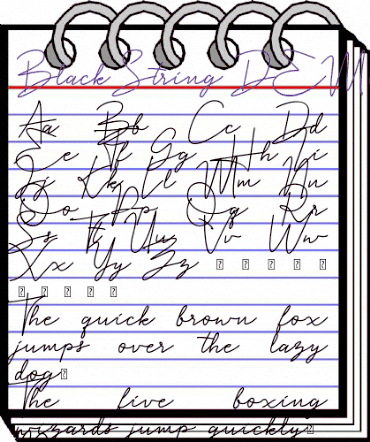 Black String DEM
Aa Bb Cc Dd
Ee Ff Gg Hh Ii
Jj Kk Ll Mm Nn
Oo Pp Qq Rr
Ss Tt Uu Vv Ww
Xx Yy Zz
The quick brown fox
jumps over the lazy
dog
The five boxing
wizards jump quickly